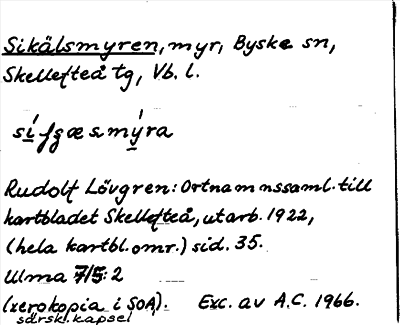 Sikälsmyren, myr, Byske sn,
Skellefteå tg, Vb. l.
Rudolf Lövgren: Ortnamnssaml. till
kartbladet Skellefteå, utarb. 1922,
(hela kartbl.omr.) sid. 35.
Ulma 75:2
(xerokopia i SOA). Exc. av A.C. 1966.
särskl. kapsel